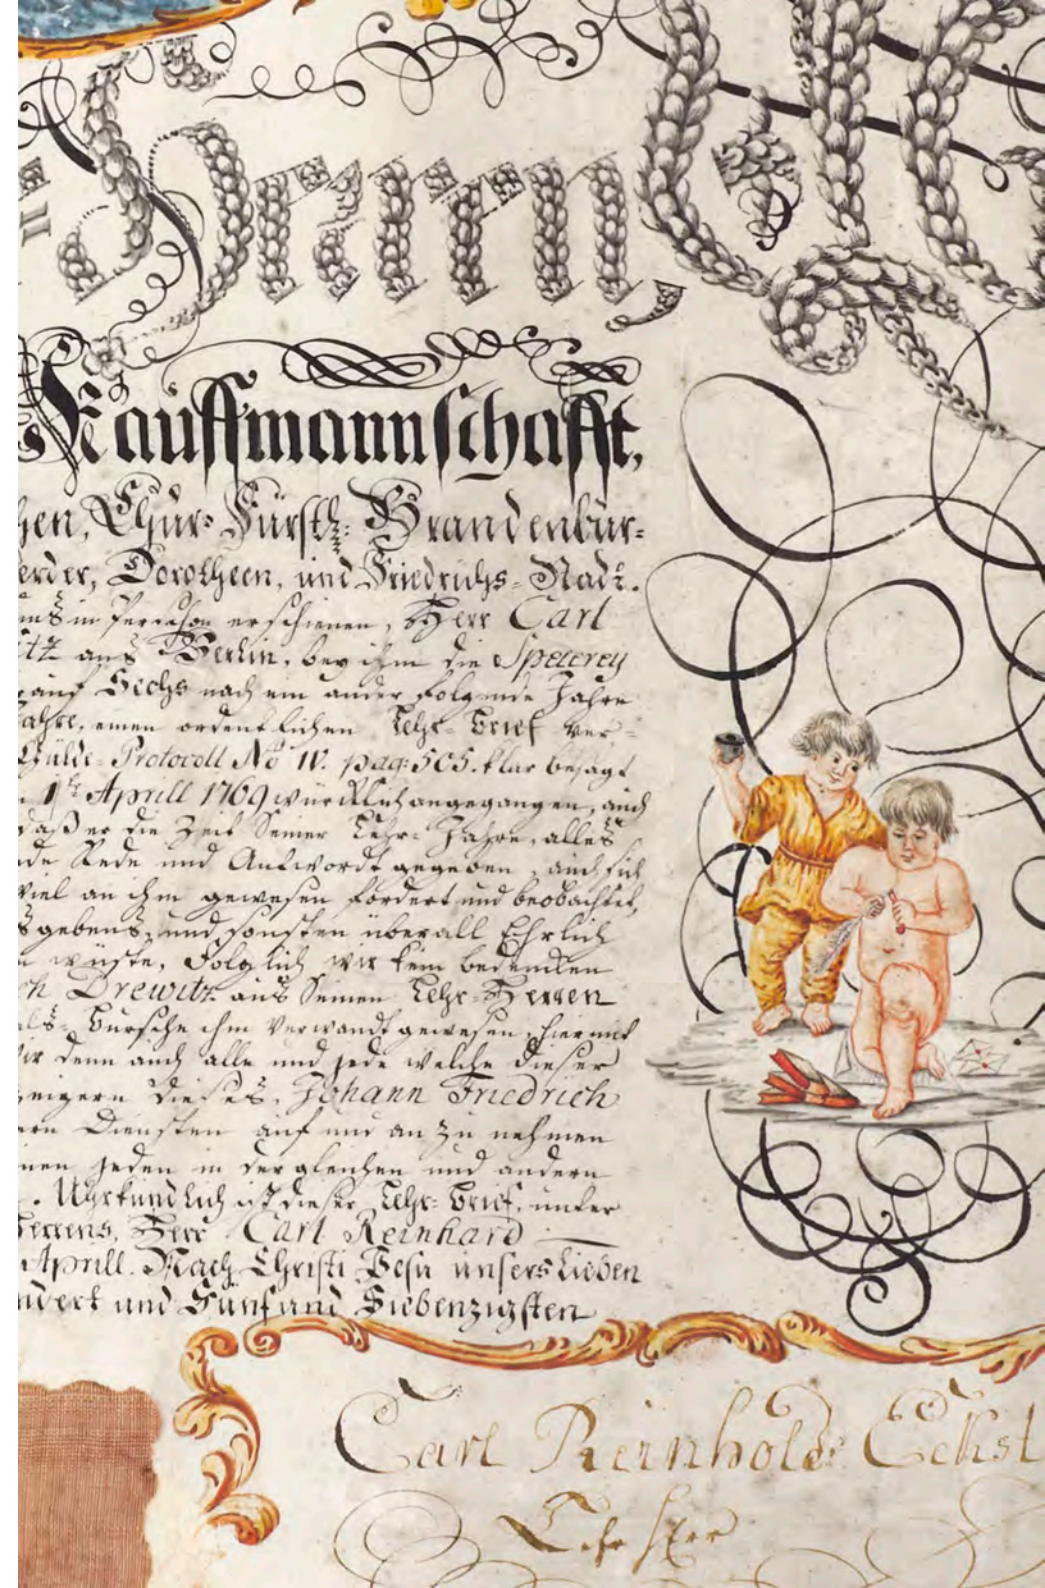 Kauffmannschafft,
hen, Chur- Fürstl: Brandenbur-
erder, Dorotheen, und Friedrichs-Stadt.
erschienen, Herr Carl
aus Berlin, bey ihm die Specerey
auf Sechs nach ein ander folgende Jahre
Jahre, einen ordentlichen Lehr-Brief ver-
Gülde-Protocoll No IV. pag: 505. klar besagt
Aprill 1769 würcklich angegangen, auch
daß er die Zeit Seiner Lehr-Jahre, alles
de Rede und Antwordt gegeben, auch sich
viel an ihm gewesen fordert und beobachtet,
gebens, und sonsten überall Ehrlich
wüste. Folglich wir kein bedencken
ch Drewitz aus Seinen Lehr-Herren
als- Bursche ihm Verwandt gewesen, hiermit
ir denn auch alle und jede welche dieser
zeigern dieses, Johann Friedrich
ern Diensten auf und an zu nehmen
nen jeden in dergleichen und andern
Uhrkundlich ist dieser Lehr-Brief, unter
Herrens, Herr Carl Reinhard
Aprill. Nach Christi Jesu unsers Lieben
ndert und Fünf und Siebenzigsten
Carl Reinhold Eckst
Lehr Herr